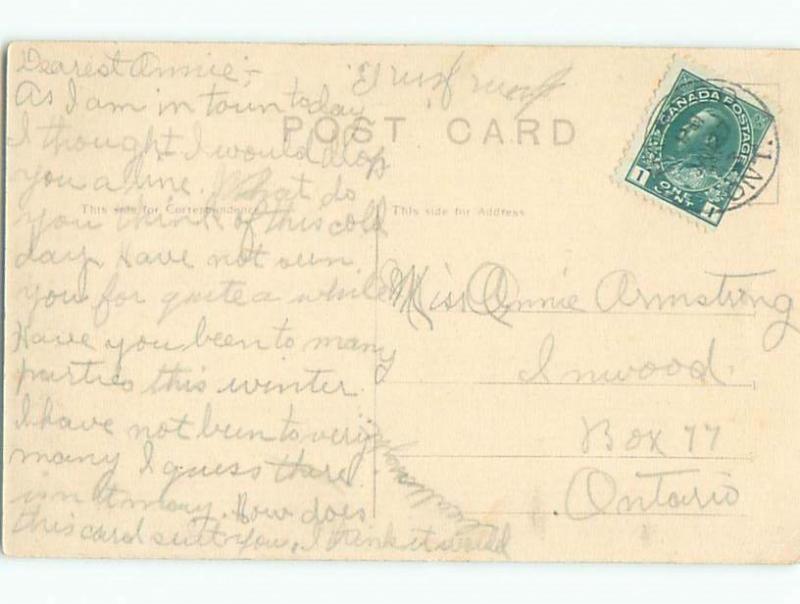 Dearest Annie;-
As I am in town today
I thought I would drop
you a line. What do
you think of this cold
day. Have not seen
you for quite a while
Have you been to many
parties this winter.
I have not been to very
many I guess there
isn't many. How does
this card suit you. I think it would
POST CARD
This side for Correspondence
This side for Address
CANADA POSTAGE
1 ONE CENT 1
ONT.
Miss Annie Armstrong
Inwood.
Box 77
Ontario